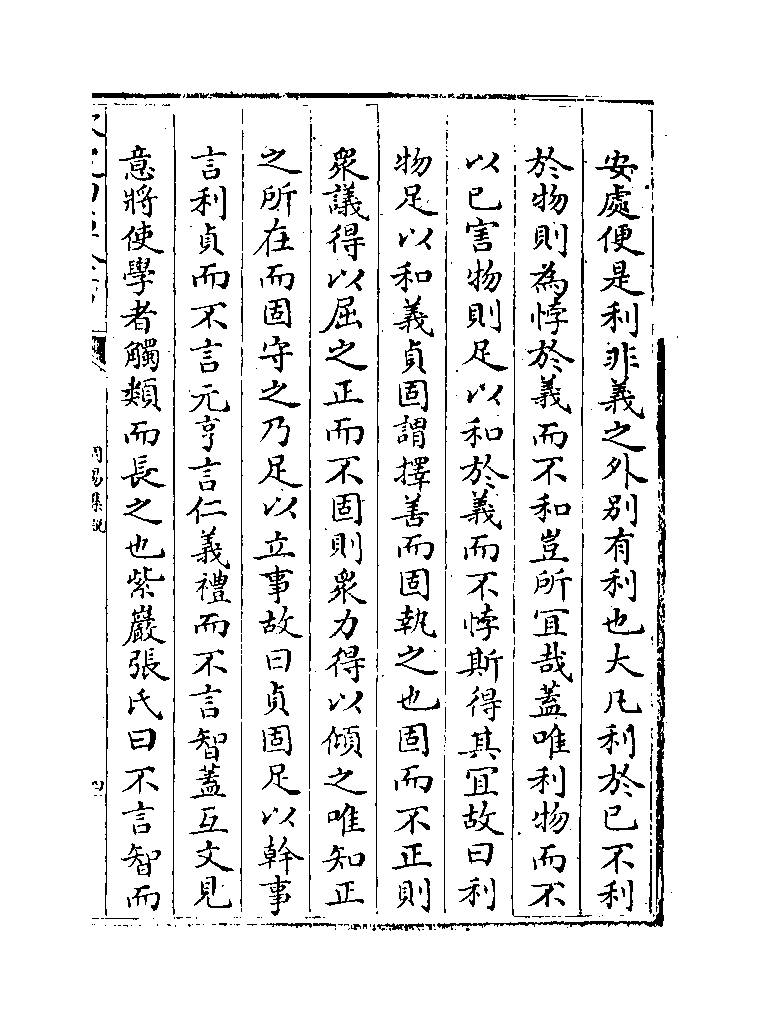 安處便是利非義之外別有利也大凡利於已不利
於物則為悖於義而不和豈所冝哉蓋唯利物而不
以已害物則足以和於義而不悖斯得其冝故曰利
物足以和義貞固謂擇善而固執之也固而不正則
衆議得以屈之正而不固則衆力得以傾之唯知正
之所在而固守之乃足以立事故曰貞固足以幹事
言利貞而不言元亨言仁義禮而不言智蓋互文見
意將使學者觸類而長之也紫巖張氏曰不言智而
周易集說
四